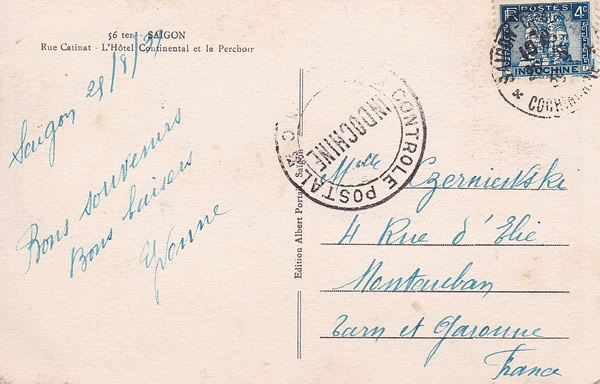 56 ter. SAÏGON
Rue Catinat - L'Hôtel Continental et le Perchoir
Saïgon 29/8/39
Bons souvenirs
Bons baisers
Yvonne
Edition Albert Portail Saïgon
CONTROLE POSTAL
INDOCHINE
POSTES
4c
INDOCHINE
SAIGON
COCHINCHINE
Mlle Czernievski
4 Rue d'Elie
Montauban
Tarn et Garonne
France